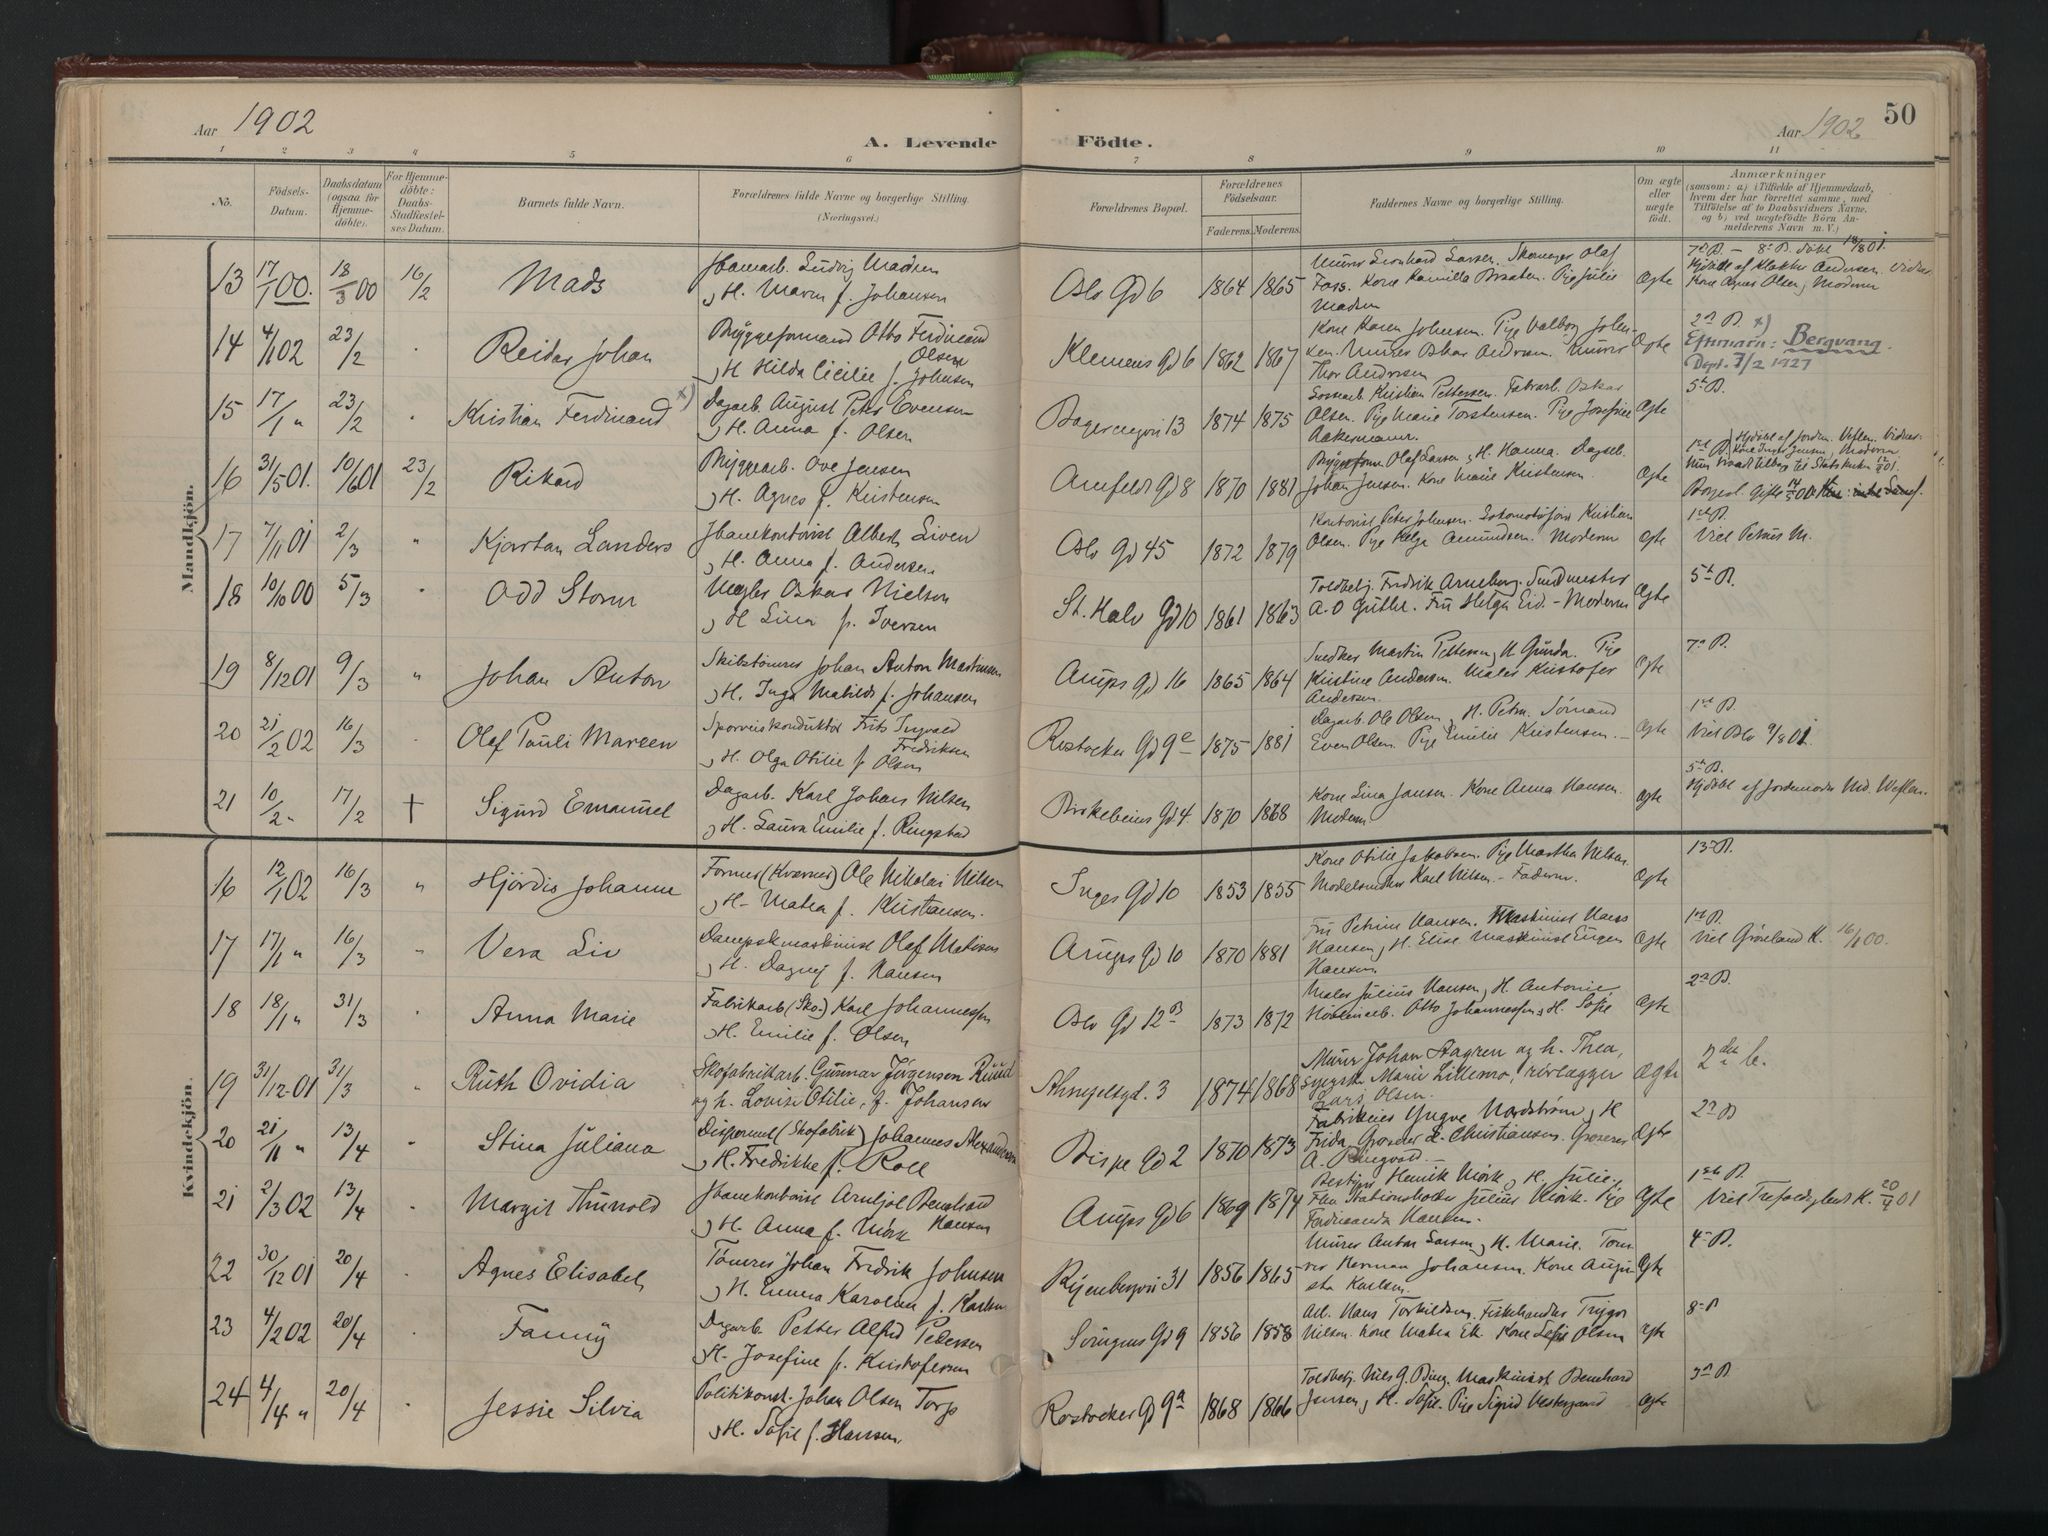 Aar 1902
A. Levende Födte.
Aar 1902
50
1 2 3 4 5 6 7 8 9 10 11
No.
Födsels-
Datum.
Daabsdatum
(ogsaa for
Hjemme-
döbte).
For Hjemme-
döbte:
Daabs-
Stadfæstel-
ses Datum.
Barnets fulde Navn.
Forældrenes fulde Navne og borgerlige Stilling.
(Næringsvei.)
Forældrenes Bopæl.
Forældrenes
Födselsaar.
Faderens. Moderens.
Faddernes Navne og borgerlige Stilling.
Om ægte
eller
uægte
födt.
Anmærkninger
(saasom: a) i Tilfælde af Hjemmedaab,
hvem der har forrettet samme, med
Tilföielse af to Daabsvidners Navne,
og b) ved uægtefödte Börn An-
melderens Navn m. V.)
Mandkjön.
13 17/1 00. 18/3 00 16/2 Mads
Ludvig Madsen
H. Maren f. Johansen
Oslo Gd 6 1864 1865
Murer Leonhard Larsen. Skomager Olaf
Foss. Kone Kamilla Braaten. Pige Julie
Madsen
Ægte
14 4/1 02 23/2 Reidar Johan
Bryggeformand Otto Ferdinand
Olsen
H Hilda Cicilie f. Johnsen
Klemens Gd 6 1862 1867
Kone Karen Johnsen. Pige Valborg John-
sen. Murer Oskar Andersen. Murer
Thor Andersen
Ægte
2n B. x)
Efternavn: Bergvang.
Dept. 7/2 1927
15 17/1 " 23/2 Kristian Ferdinand x)
Dagarb. August Peter Evensen
H. Anna f. Olsen
13 1874 1875
Kristian Pettersen. Fabrarb. Oskar
Olsen. Pige Marie Torstensen. Pige Josefine
Aakermann.
Ægte
5t B.
16 31/5 01. 10/6 01 23/2 Rikard
Bryggearb. Ove Jensen
H. Agnes f. Kristensen
Arnfeldt Gd 8 1870 1881
Olaf Larsen H. Hanna. Dagarb.
Johan Jensen. Kone Marie Kristensen.
Ægte
17 7/11 01 2/3 " Kjartan Landers
Jbanekontorist Albert Siven
H. Anna f. Andersen
Oslo Gd 45 1872 1879
Kontorist Peter Johnsen. Lokomotivförer Kristian
Olsen. Pige Helga Amundsen. Moderen
Ægte
1ste B.
Viet Petrus M.
18 10/10 00 5/3 Odd Storm
Megler Oskar Nielsen
H Lina f. Iversen
St. Halv Gd 10 1861 1863
Toldbetj. Fredrik Arneberg. Smedmester
A. O Guttler. Fru Helga Eid. - Moderen
Ægte
5t B.
19 8/12 01 9/3 " Johan Anton
Skibstömrer Johan Anton Martinsen
H. Inga Matilde f. Johansen
Arups Gd 16 1865 1864
Snedker Martin Pettersen H Gunda. Pige
Kristine Andersen. Maler Kristofer
Andersen
Ægte
7n B.
20 21/2 02 16/3 Olaf Pauli Mareen
Sporveiskonduktør Frits Ingvald
Fredriksen
H. Olga Otilie f Olsen
Rostocker Gd 9e 1875 1881
Dagarb. Ole Olsen H. Petra. Sömand
Even Olsen. Pige Emilie Kristensen. -
Ægte
1ste B.
Viet Oslo 9/8 01.
21 10/2 " 17/2 † Sigurd Emanuel
Dagarb. Karl Johans Nilsen
H. Laura Emilie f. Ringstad
Birkebeiner Gd 4. 1870 1868
Kone Lina Jansen. Kone Anna Hansen.
Moderen
Ægte
5t B.
Hjdøbt af Jordemoder Md. Weflen.
Kvindekjön.
16 12/1 02 16/3 " Hjördis Johanne
Former (Kværner) Ole Nikolai Nilsen
H- Matea f. Kristiansen.
Inges Gd 10 1853 1855
Kone Otilie Jakobsen. Pige Martha Nilsen.
Modelsnedker Karl Nilsen. - Faderen.
Ægte
13n B.
17 17/1 " 16/3 " Vera Liv
Dampskmaskinist Olaf Matisen
H. Dagny f. Hansen
Arups Gd 10 1870 1881
Fru Petrine Hansen. Maskinist Hans
Hansen H. Elise Maskinist Eugen
Hansen
Ægte
1ste B.
Viet Grönland K. 16/1 00.
18 18/1 " 31/3 Anna Marie
Fabrikarb (Sko-) Karl Johannessen
H. Emilie f. Olsen
Oslo Gd 12B 1873 1872
Maler Julius Hansen H. Antonie,
Høvleriarb. Otto Johannessen H. Sofie
Ægte
2n B.
19 31/12-01 31/3 " Ruth Ovidia
Skofabrikarb. Gunnar Jørgensen Ruud
og h. Lovise Otilie, f. Johansen
3 1874 1868
Murer Johan Aagren og h. Thea,
Marie Lillemo, rörlægger
Lars Olsen.
Ægte
2det b.
20 21/11 " 13/4 Stina Juliana
Disponent (Skofabrik) Johannes Alexandersen
H. Fredrikke f. Roll
Bispe Gd 2 1870 1873
Fabrikeier Yngve Nordström H
Frida, Grosserer L. Christiansen. Grosserer
A. Ringvold. -
Ægte
2n B
21 2/3 02 13/4 Margit Thunold
Jbanekontorist Arnljot Bernhard
Hansen
H. Anna f. Mörk
Arups Gd 6 1869 1874
Henrik Mörk H. Julie,
Stationsholder Julius Mörk. Pige
Ferdinanda Hansen.
Ægte
1ste B.
Viet Trefoldigheds K. 20/4 01
22 30/12 01 20/4 Agnes Elisabeth
Tömrer Johan Fredrik Johnsen
H. Emma Karoline f. Karlsen
Ryenbergvei 31 1856 1865
Murer Anton Larsen H. Marie. Töm-
rer Herman Johansen. Kone Augu-
sta Karlsen.
Ægte
4- B.
23 4/2 02 20/4 Fanny
Dagarb. Petter Alfred Pedersen
H. Josefine f. Kristofersen
Sörengens Gd 9 1856 1858
Arb. Hans Torkildsen. Fiskehandler Trygve
Nilsen. Kone Matea Ek. Kone Sofie Olsen
Ægte
8- B
24 4/4 " 20/4 Jessie Silvia
Politikonst. Johan Olsen Torp
H. Sofie f. Hansen.
Rostocker Gd 9a 1868 1866
Toldbetj. Nils G. Ring. Maskinist Bernhard
Jensen H. Sofie. Pige Sigrid Vestergaard
Ægte
3n B